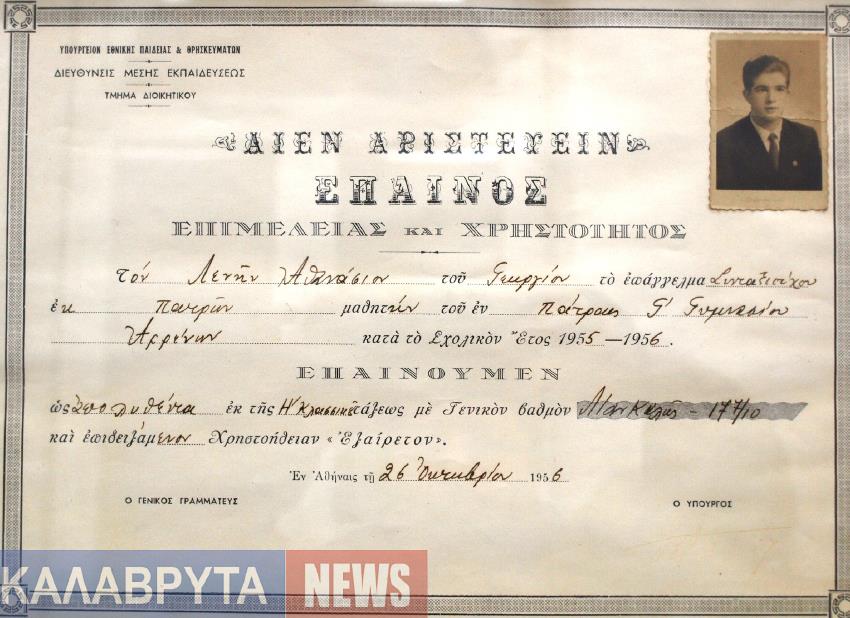 ΥΠΟΥΡΓΕΙΟΝ ΕΘΝΙΚΗΣ ΠΑΙΔΕΙΑΣ & ΘΡΗΣΚΕΥΜΑΤΩΝ
ΔΙΕΥΘΥΝΣΙΣ ΜΕΣΗΣ ΕΚΠΑΙΔΕΥΣΕΩΣ
ΤΜΗΜΑ ΔΙΟΙΚΗΤΙΚΟΥ
ΑΙΕΝ ΑΡΙΣΤΕΥΕΙΝ
ΕΠΑΙΝΟΣ
ΕΠΙΜΕΛΕΙΑΣ ΚΑΙ ΧΡΗΣΤΟΤΗΤΟΣ
τὸν Λενῆν Ἀθανάσιον τοῦ Γεωργίου τὸ ἐπάγγελμα Συνταξιούχου
ἐκ Πατρῶν μαθητὴν τοῦ ἐν Πάτραις Γ' Γυμνασίου
Ἀρρένων κατὰ τὸ Σχολικὸν Ἔτος 1955—1956.
ΕΠΑΙΝΟΥΜΕΝ
ὡς ἀπολυθέντα ἐκ τῆς Η' Κλασικῆς τάξεως μὲ Γενικὸν βαθμὸν Λίαν Καλῶς - 17
καὶ ἐπιδειξάμενον Χρηστοήθειαν «Ἐξαίρετον».
Ἐν Ἀθήναις τῇ 26 Ὀκτωβρίου 1956
Ο ΓΕΝΙΚΟΣ ΓΡΑΜΜΑΤΕΥΣ Ο ΥΠΟΥΡΓΟΣ
ΚΑΛΑΒΡΥΤΑ NEWS